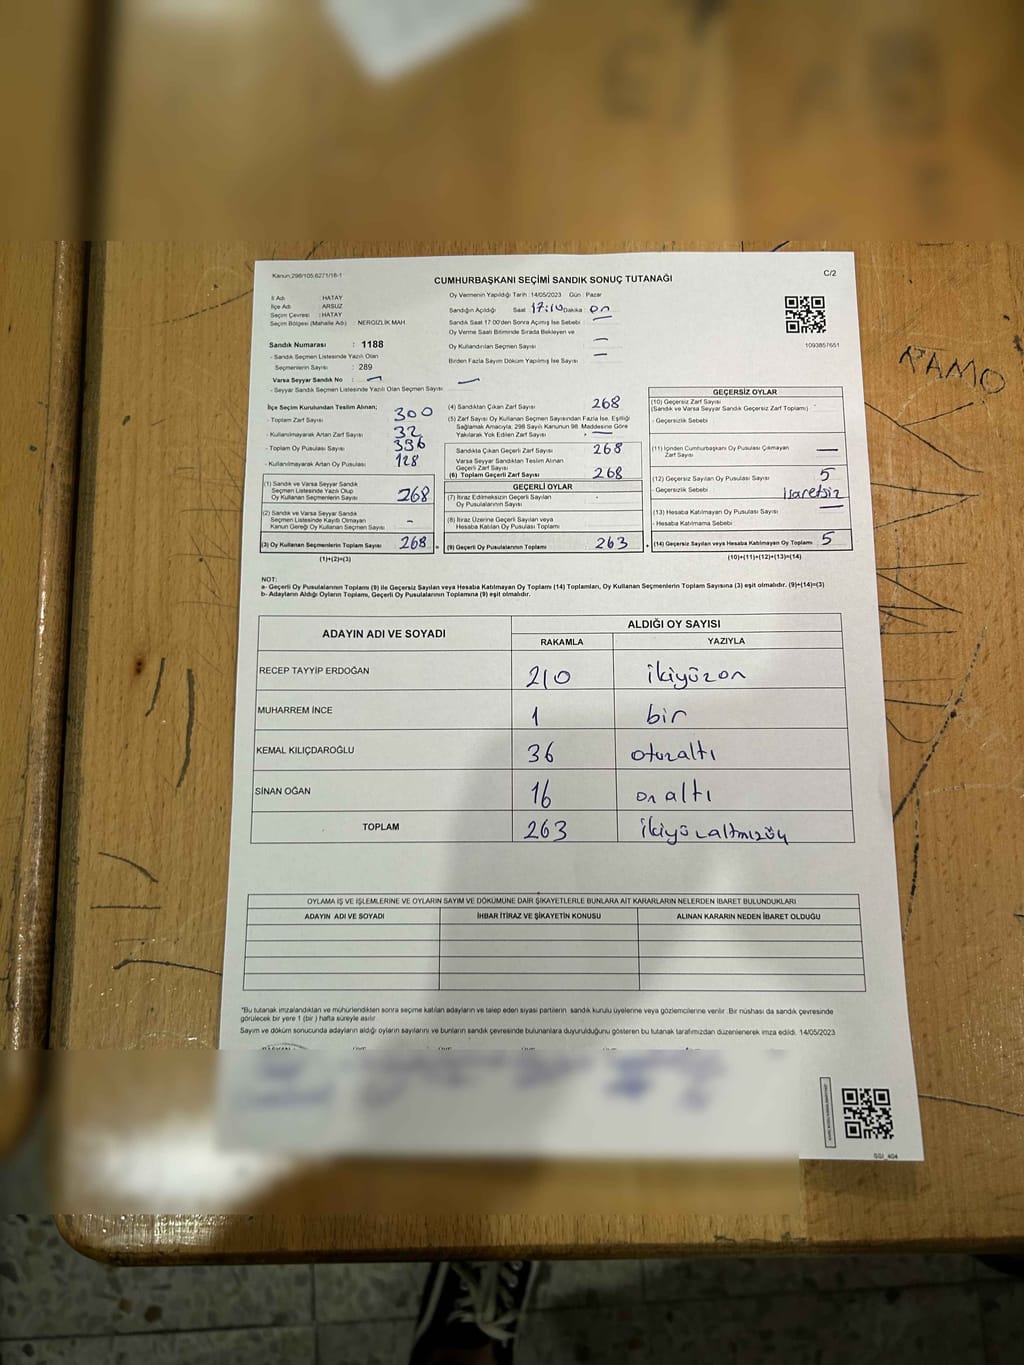 Kanun:298/105.6271/16-1
CUMHURBAŞKANI SEÇİMİ SANDIK SONUÇ TUTANAĞI
C/2
İl Adı : HATAY
İlçe Adı : ARSUZ
Seçim Çevresi : HATAY
Seçim Bölgesi (Mahalle Adı) : NERGİZLİK MAH.
Sandık Numarası : 1188
- Sandık Seçmen Listesinde Yazılı Olan
Seçmenlerin Sayısı : 289
Varsa Seyyar Sandık No : —
- Seyyar Sandık Seçmen Listesinde Yazılı Olan Seçmen Sayısı : —
Oy Vermenin Yapıldığı Tarih : 14/05/2023 Gün : Pazar
Sandığın Açıldığı Saat : 17:10 Dakika : on
Sandık Saat 17:00'den Sonra Açılmış İse Sebebi : —
Oy Verme Saati Bitiminde Sırada Bekleyen ve
Oy Kullandırılan Seçmen Sayısı : —
Birden Fazla Sayım Döküm Yapılmış İse Sayısı : —
1093857651
İlçe Seçim Kurulundan Teslim Alınan;
- Toplam Zarf Sayısı : 300
- Kullanılmayarak Artan Zarf Sayısı : 32
- Toplam Oy Pusulası Sayısı : 396
- Kullanılmayarak Artan Oy Pusulası : 128
(1) Sandık ve Varsa Seyyar Sandık
Seçmen Listesinde Yazılı Olup
Oy Kullanan Seçmenlerin Sayısı 268
(2) Sandık ve Varsa Seyyar Sandık
Seçmen Listesinde Kayıtlı Olmayan
Kanun Gereği Oy Kullanan Seçmen Sayısı -
(3) Oy Kullanan Seçmenlerin Toplam Sayısı 268 =
(1)+(2)=(3)
(4) Sandıktan Çıkan Zarf Sayısı : 268
(5) Zarf Sayısı Oy Kullanan Seçmen Sayısından Fazla İse, Eşitliği
Sağlamak Amacıyla; 298 Sayılı Kanunun 98. Maddesine Göre
Yakılarak Yok Edilen Zarf Sayısı : —
Sandıkta Çıkan Geçerli Zarf Sayısı : 268
Varsa Seyyar Sandıktan Teslim Alınan
Geçerli Zarf Sayısı
(6) Toplam Geçerli Zarf Sayısı : 268
GEÇERLİ OYLAR
(7) İtiraz Edilmeksizin Geçerli Sayılan
Oy Pusulalarının Sayısı
(8) İtiraz Üzerine Geçerli Sayılan veya
Hesaba Katılan Oy Pusulası Toplamı
(9) Geçerli Oy Pusulalarının Toplamı 263 +
GEÇERSİZ OYLAR
(10) Geçersiz Zarf Sayısı
(Sandık ve Varsa Seyyar Sandık Geçersiz Zarf Toplamı)
- Geçersizlik Sebebi
(11) İçinden Cumhurbaşkanı Oy Pusulası Çıkmayan
Zarf Sayısı —
(12) Geçersiz Sayılan Oy Pusulası Sayısı 5
- Geçersizlik Sebebi İşaretsiz
(13) Hesaba Katılmayan Oy Pusulası Sayısı —
- Hesaba Katılmama Sebebi
(14) Geçersiz Sayılan veya Hesaba Katılmayan Oy Toplamı 5
(10)+(11)+(12)+(13)=(14)
NOT:
a- Geçerli Oy Pusulalarının Toplamı (9) ile Geçersiz Sayılan veya Hesaba Katılmayan Oy Toplamı (14) Toplamları, Oy Kullanan Seçmenlerin Toplam Sayısına (3) eşit olmalıdır. (9)+(14)=(3)
b- Adayların Aldığı Oyların Toplamı, Geçerli Oy Pusulalarının Toplamına (9) eşit olmalıdır.
ADAYIN ADI VE SOYADI ALDIĞI OY SAYISI
RAKAMLA YAZIYLA
RECEP TAYYİP ERDOĞAN 210 ikiyüzon
MUHARREM İNCE 1 bir
KEMAL KILIÇDAROĞLU 36 otuzaltı
SİNAN OĞAN 16 on altı
TOPLAM 263 ikiyüzaltmışüç
OYLAMA İŞ VE İŞLEMLERİNE VE OYLARIN SAYIM VE DÖKÜMÜNE DAİR ŞİKAYETLERLE BUNLARA AİT KARARLARIN NELERDEN İBARET BULUNDUKLARI
ADAYIN ADI VE SOYADI İHBAR İTİRAZ VE ŞİKAYETİN KONUSU ALINAN KARARIN NEDEN İBARET OLDUĞU
*Bu tutanak imzalandıktan ve mühürlendikten sonra seçime katılan adayların ve talep eden siyasi partilerin sandık kurulu üyelerine veya gözlemcilerine verilir. Bir nüshası da sandık çevresinde
görülecek bir yere 1 (bir) hafta süreyle asılır
Sayım ve döküm sonucunda adayların aldığı oyların sayılarını ve bunların sandık çevresinde bulunanlara duyurulduğunu gösteren bu tutanak tarafımızdan düzenlenerek imza edildi. 14/05/2023
RAMO